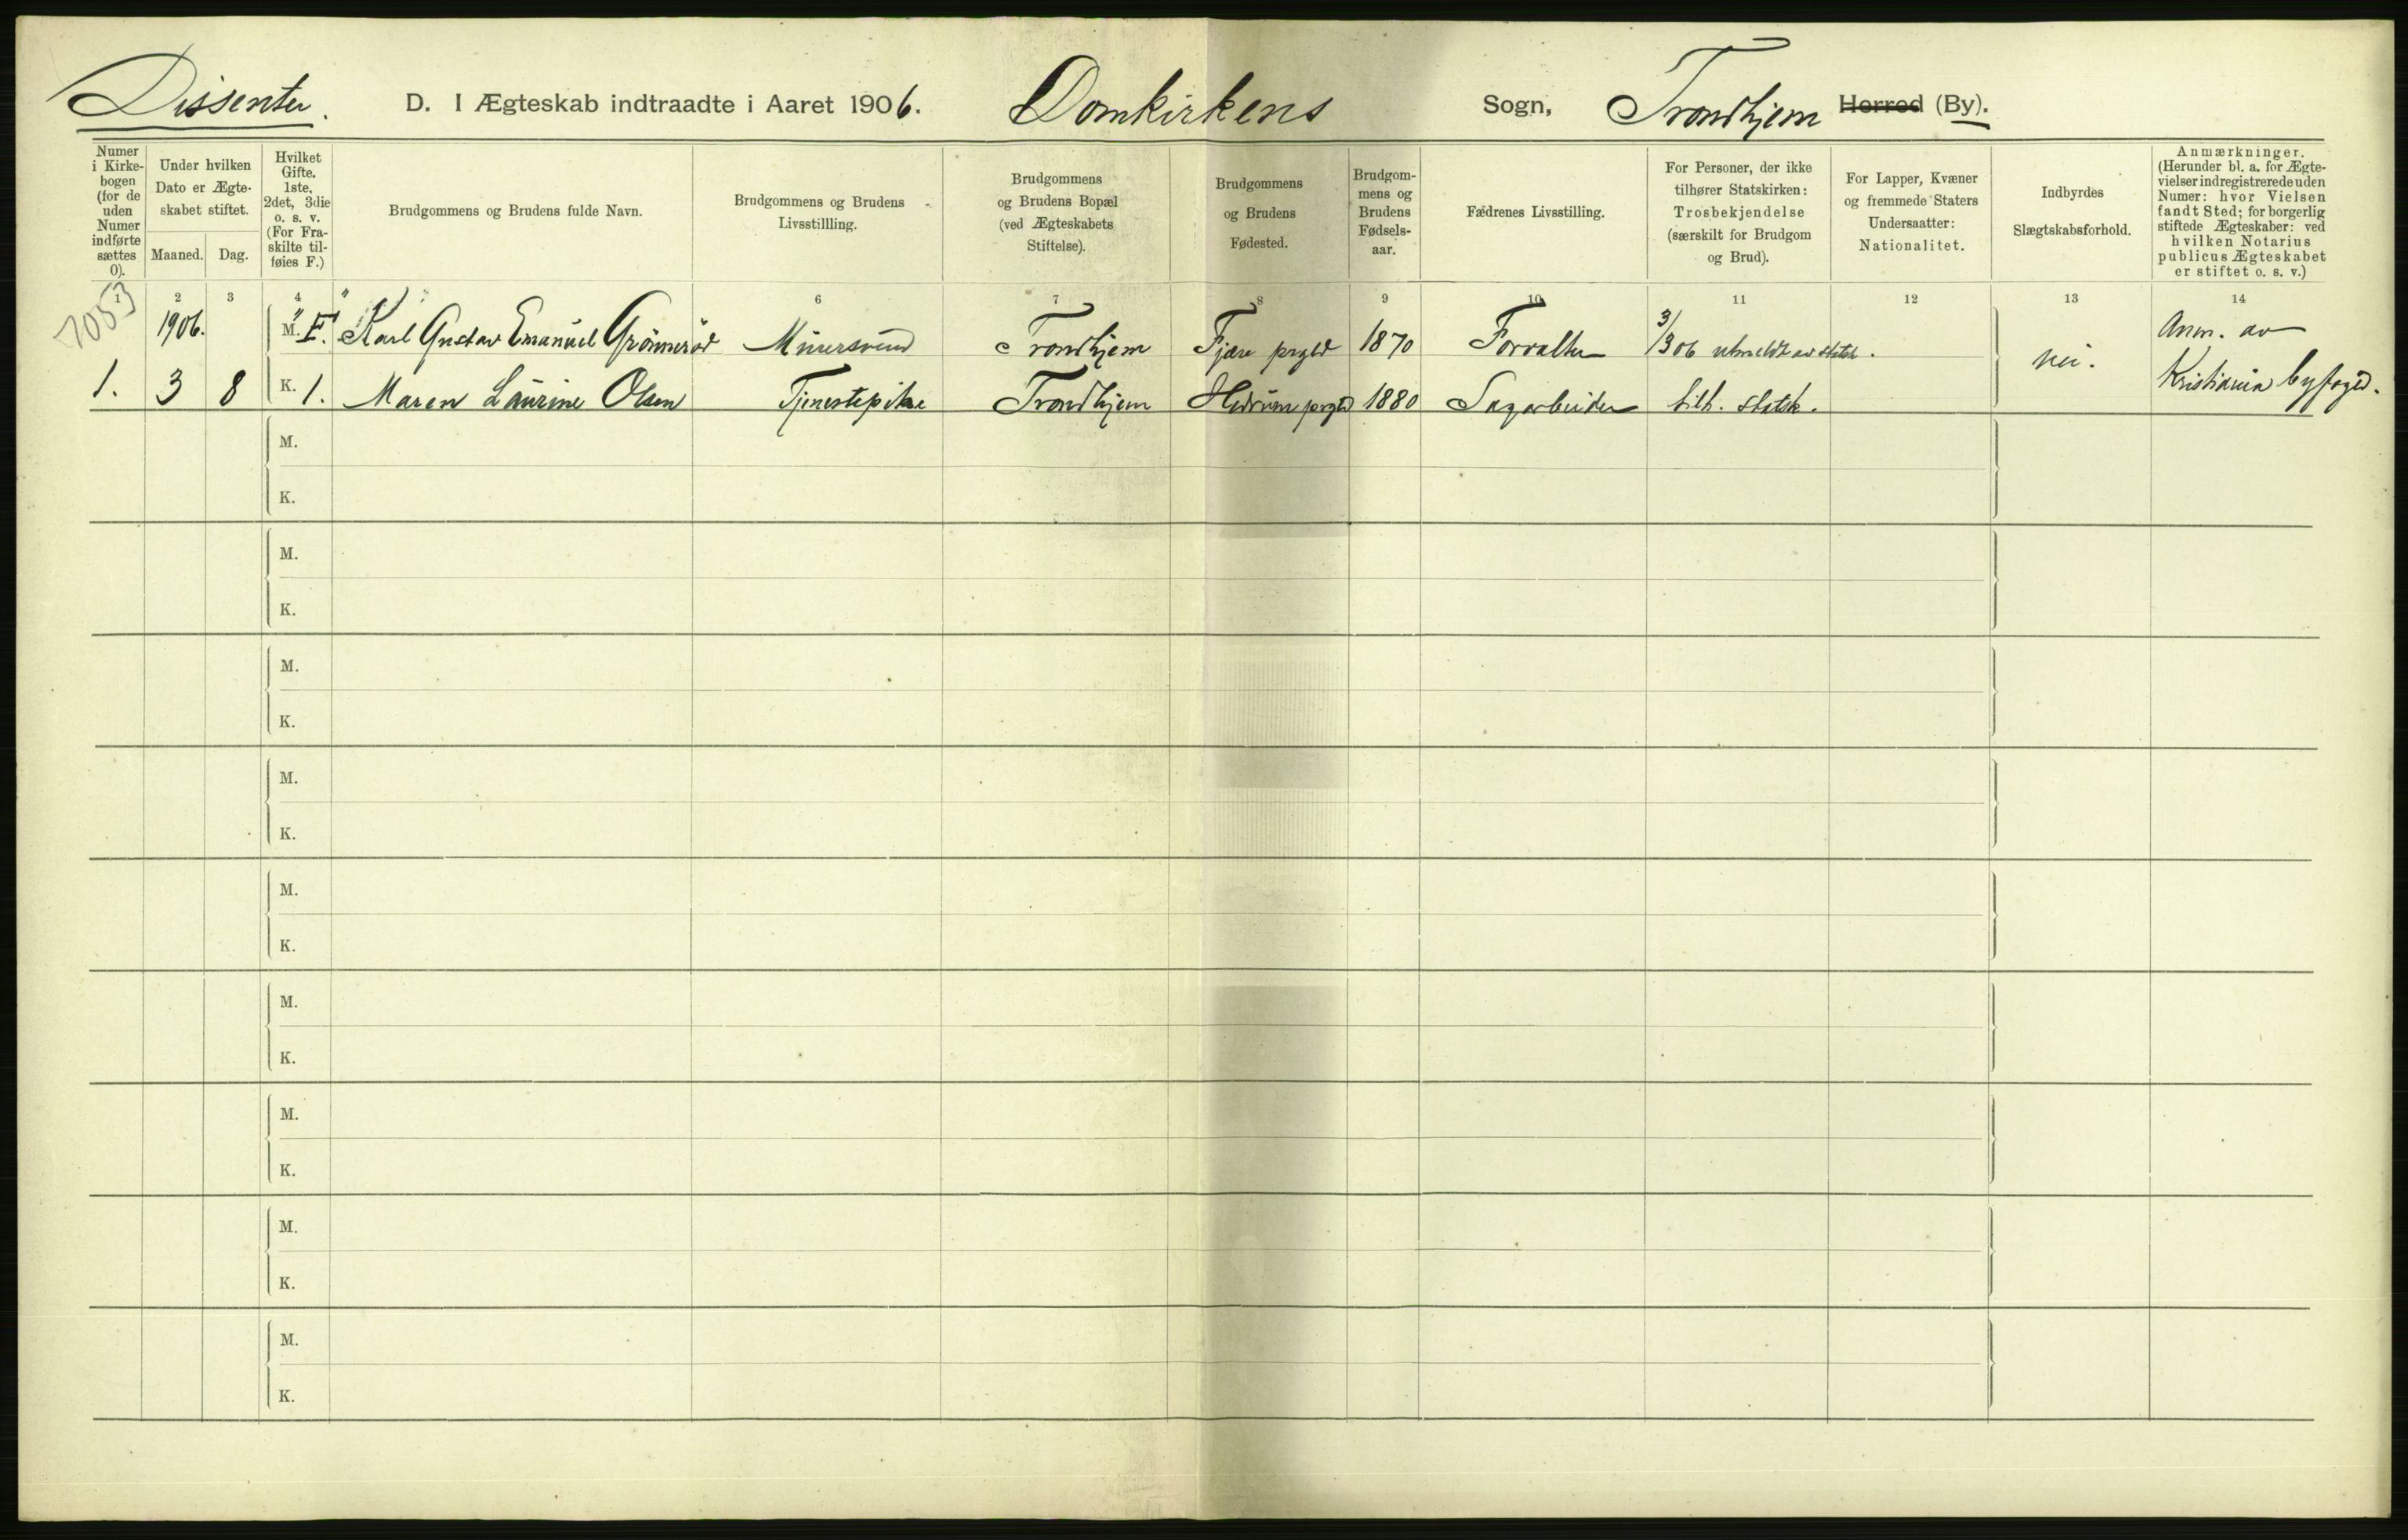 Dissenter.
D. I Ægteskab indtraadte i Aaret 1906. Domkirkens Sogn, Trondhjem Herred (By).
Numer i Kirkebogen (for de uden Numer indførte sættes 0).
Under hvilken Dato er Ægteskabet stiftet.
Maaned. Dag.
Hvilket Gifte. 1ste, 2det, 3die o. s. v. (For Fraskilte tilføies F.)
Brudgommens og Brudens fulde Navn.
Brudgommens og Brudens Livsstillling.
Brudgommens og Brudens Bopæl (ved Ægteskabets Stiftelse).
Brudgommens og Brudens Fødested.
Brudgommens og Brudens Fødselsaar.
Fædrenes Livsstilling.
For Personer, der ikke tilhører Statskirken: Trosbekjendelse (særskilt for Brudgom og Brud).
For Lapper, Kvæner og fremmede Staters Undersaatter: Nationalitet.
Indbyrdes Slægtskabsforhold.
Anmærkninger. (Herunder bl. a. for Ægtevielser indregistrerede uden Numer: hvor Vielsen fandt Sted; for borgerlig stiftede Ægteskaber: ved hvilken Notarius publicus Ægteskabet er stiftet o. s. v.)
1 2 3 4 6 7 8 9 10 11 12 13 14
7053
1906. M. F. Karl Gustav Emanuel Grönneröd Murersvend Trondhjem Fjære prgld 1870 Forvalter 3/3 06 utmeldt av statsk. nei. Anm. av
1. 3 8 K. 1. Maren Laurine Olsen Tjenestepike Trondhjem Hedrum prgld 1880 Sagarbeider tilh. statsk. Kristiania byfoged.
M.
K.
M.
K.
M.
K.
M.
K.
M.
K.
M.
K.
M.
K.
M.
K.
M.
K.